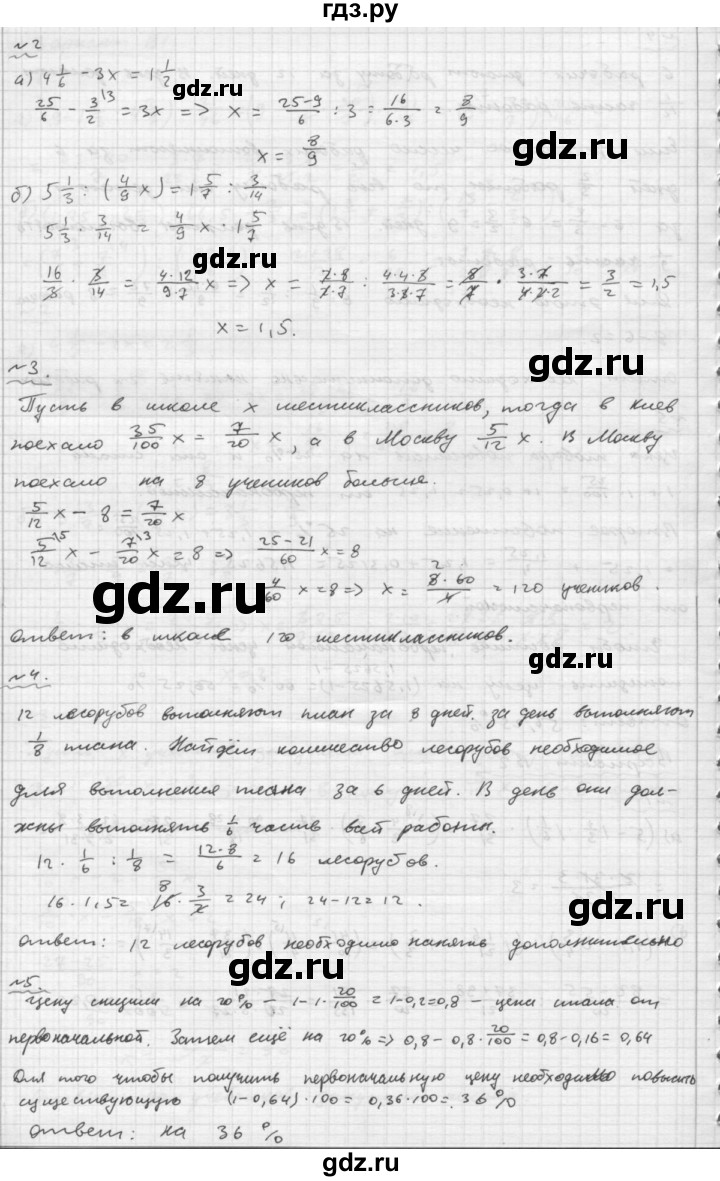 гдз.ру
№2
а) 4 1/6 - 3x = 1 1/2
gdz.ru
25/6 - 3/2 \3 = 3x => x = (25-9)/6 : 3 = 16/(6·3) = 8/9
x = 8/9
gdz.ru
б) 5 1/3 : (4/9 x) = 1 5/7 : 3/14
5 1/3 · 3/14 = 4/9 x · 1 5/7
gdz.ru
16/3 · 3/14 = (4·12)/(9·7) x => x = (2·8)/(2·7) : (4·4·3)/(3·3·7) = 8/7 · (3·7)/(4·2·2) = 3/2 = 1,5
x = 1,5.
№3.
gdz.ru
Пусть в школе x шестиклассников, тогда в Киев
поехало 35/100 x = 7/20 x, а в Москву 5/12 x. В Москву
gdz.ru
поехало на 8 учеников больше.
5/12 x - 8 = 7/20 x
5/12 \5 x - 7/20 \3 x = 8 => (25-21)/60 x = 8
gdz.ru
4/60 x = 8 => x = (8·60)/4 = 120 учеников.
ответ: в школе 120 шестиклассников.
gdz.ru
№4.
12 лесорубов выполняют план за 8 дней. за день выполняют
1/8 плана. Найдём количество лесорубов необходимое
gdz.ru
для выполнения плана за 6 дней. В день они дол-
жны выполнять 1/6 часть всей работы.
12 · 1/6 : 1/8 = (12·8)/6 = 16 лесорубов.
gdz.ru
16 · 1,5 = 16 · 3/2 = 24; 24-12 = 12.
ответ: 12 лесорубов необходимо нанять дополнительно
gdz.ru
№5.
Цену снизили на 20% - 1-1·20/100 = 1-0,2=0,8 - цена стала от
первоначальной. Затем ещё на 20% => 0,8 - 0,8·20/100 = 0,8-0,16 = 0,64
gdz.ru
Для того чтобы получить первоначальную цену необходимо повысить
существующую (1-0,64)·100 = 0,36·100 = 36%
ответ: на 36%
gdz.ru
gdz.ru